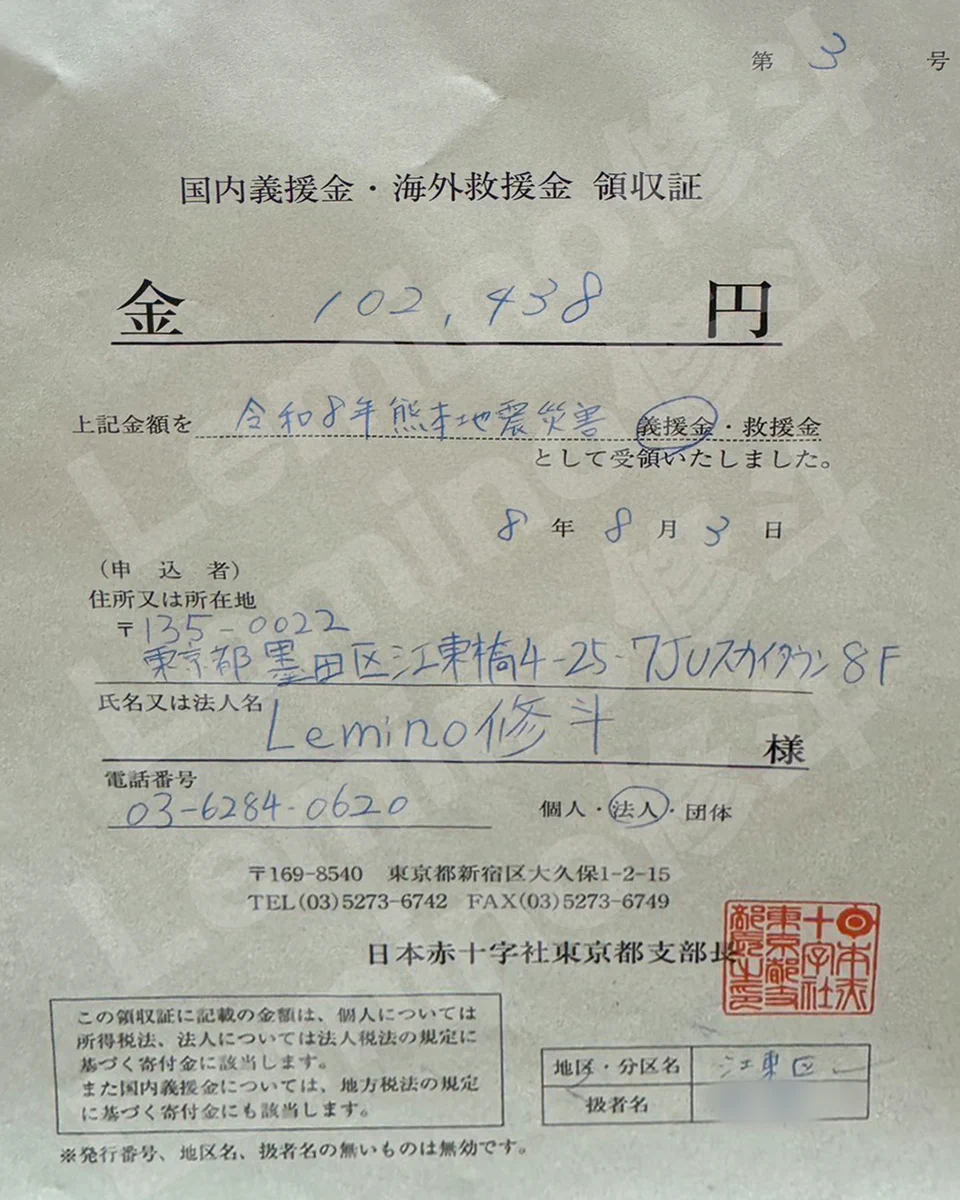 第 3 号
国内義援金・海外救援金 領収証
金 102,438 円
上記金額を 令和8年熊本地震災害 義援金・救援金
として受領いたしました。
8 年 8 月 3 日
(申 込 者)
住所又は所在地
〒135-0022
東京都墨田区江東橋4-25-7JUスカイタウン8F
氏名又は法人名 Lemino修斗 様
電話番号
03-6284-0620 個人・法人・団体
〒169-8540 東京都新宿区大久保1-2-15
TEL(03)5273-6742 FAX(03)5273-6749
日本赤十字社東京都支部長
この領収証に記載の金額は、個人については
所得税法、法人については法人税法の規定に
基づく寄付金に該当します。
また国内義援金については、地方税法の規定
に基づく寄付金にも該当します。
地区・分区名 江東区
扱者名
※発行番号、地区名、扱者名の無いものは無効です。
Lemino修斗
Lemino修斗
Lemino修斗